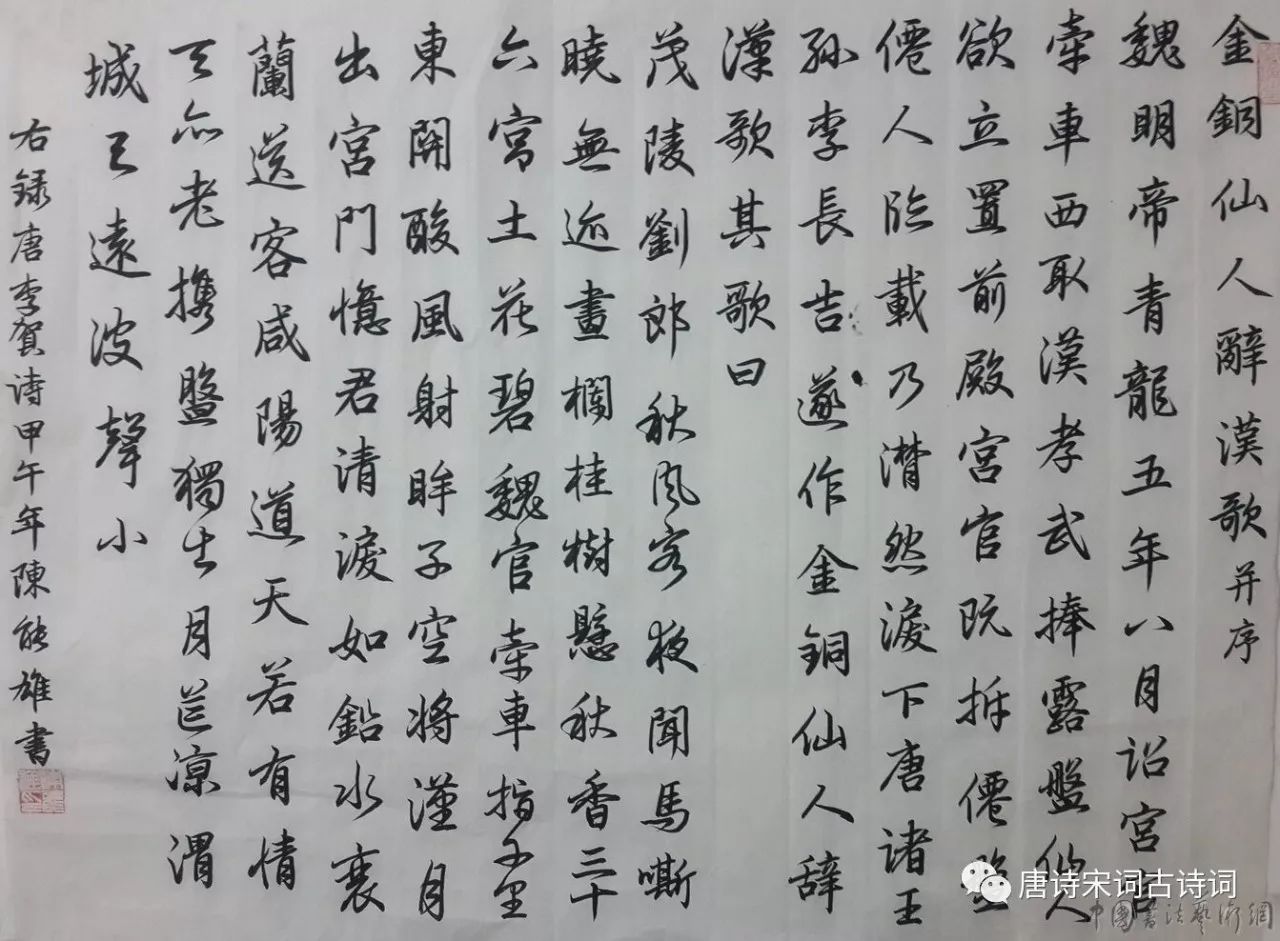 金銅仙人辭漢歌并序
魏明帝青龍五年八月詔宮官
牽車西取漢孝武捧露盤仙人
欲立置前殿宮官既拆僊盤
僊人臨載乃潸然淚下唐諸王
孫李長吉遂作金銅仙人辞
漢歌其歌曰
茂陵劉郎秋风客夜聞馬嘶
曉無迹畫欄桂樹懸秋香三十
六宮土花碧魏官牽車指千里
東開酸風射眸子空將漢月
出宮門憶君清淚如鉛水衰
蘭送客咸陽道天若有情
天亦老携盤獨出月荒凉渭
城已遠波聲小
右録唐李賀诗甲午年陳能雄書
唐诗宋词古诗词
中國書法藝術網